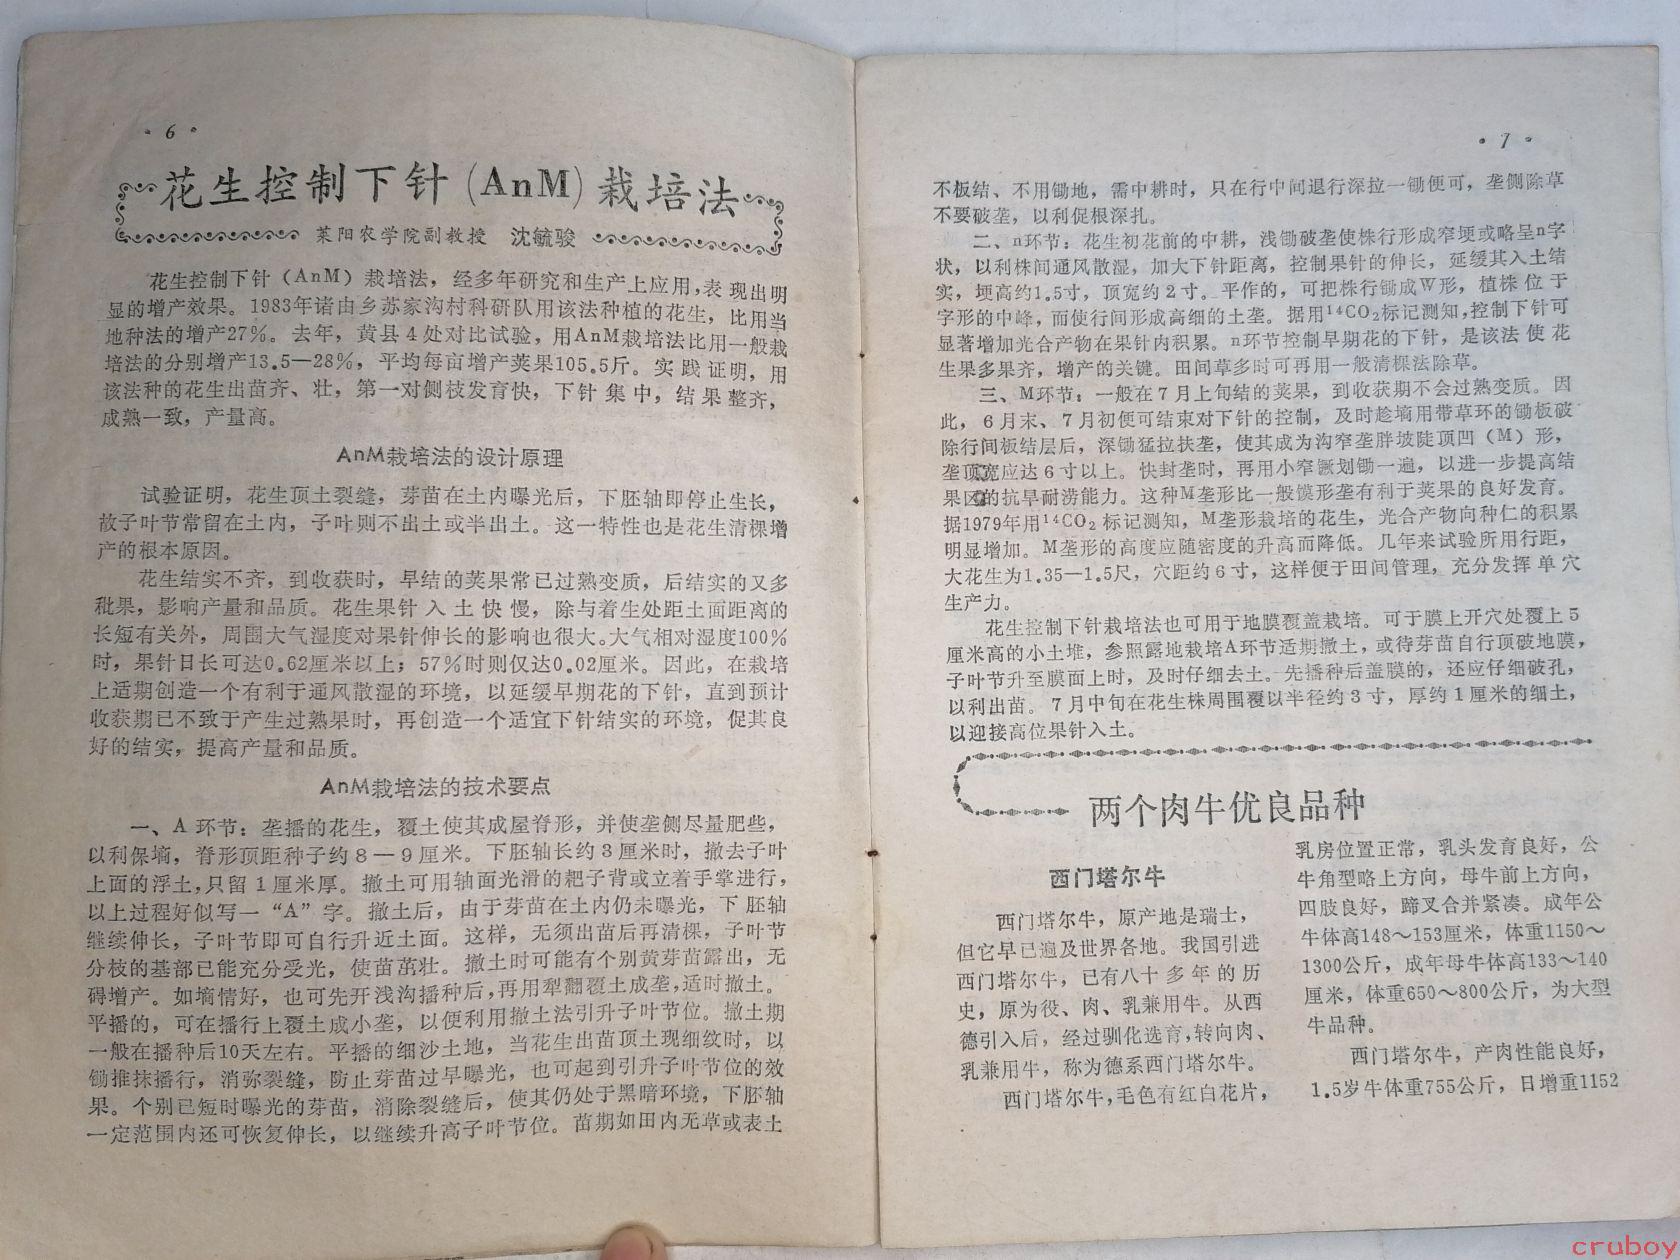 · 6 ·
花生控制下针(AnM)栽培法
莱阳农学院副教授 沈毓骏
花生控制下针（AnM）栽培法，经多年研究和生产上应用，表现出明
显的增产效果。1983年诸由乡苏家沟村科研队用该法种植的花生，比用当
地种法的增产27%。去年，黄县4处对比试验，用AnM栽培法比用一般栽
培法的分别增产13.5—28%，平均每亩增产荚果105.5斤。实践证明，用
该法种的花生出苗齐、壮，第一对侧枝发育快，下针集中，结果整齐，
成熟一致，产量高。
AnM栽培法的设计原理
试验证明，花生顶土裂缝，芽苗在土内曝光后，下胚轴即停止生长，
故子叶节常留在土内，子叶则不出土或半出土。这一特性也是花生清棵增
产的根本原因。
花生结实不齐，到收获时，早结的荚果常已过熟变质，后结实的又多
秕果，影响产量和品质。花生果针入土快慢，除与着生处距土面距离的
长短有关外，周围大气湿度对果针伸长的影响也很大。大气相对湿度100%
时，果针日长可达0.62厘米以上；57%时则仅达0.02厘米。因此，在栽培
上适期创造一个有利于通风散湿的环境，以延缓早期花的下针，直到预计
收获期已不致于产生过熟果时，再创造一个适宜下针结实的环境，促其良
好的结实，提高产量和品质。
AnM栽培法的技术要点
一、A环节：垄播的花生，覆土使其成屋脊形，并使垄侧尽量肥些，
以利保墒，脊形顶距种子约8—9厘米。下胚轴长约3厘米时，撤去子叶
上面的浮土，只留1厘米厚。撤土可用轴面光滑的耙子背或立着手掌进行，
以上过程好似写一“A”字。撤土后，由于芽苗在土内仍未曝光，下胚轴
继续伸长，子叶节即可自行升近土面。这样，无须出苗后再清棵，子叶节
分枝的基部已能充分受光，使苗茁壮。撤土时可能有个别黄芽苗露出，无
碍增产。如墒情好，也可先开浅沟播种后，再用犁翻覆土成垄，适时撤土。
平播的，可在播行上覆土成小垄，以便利用撤土法引升子叶节位。撤土期
一般在播种后10天左右。平播的细沙土地，当花生出苗顶土现细纹时，以
锄推抹播行，消弥裂缝，防止芽苗过早曝光，也可起到引升子叶节位的效
果。个别已短时曝光的芽苗，消除裂缝后，使其仍处于黑暗环境，下胚轴
一定范围内还可恢复伸长，以继续升高子叶节位。苗期如田内无草或表土
· 7 ·
不板结、不用锄地，需中耕时，只在行中间退行深拉一锄便可，垄侧除草
不要破垄，以利促根深扎。
二、n环节：花生初花前的中耕，浅锄破垄使株行形成窄埂或略呈n字
状，以利株间通风散湿，加大下针距离，控制果针的伸长，延缓其入土结
实，埂高约1.5寸，顶宽约2寸。平作的，可把株行锄成W形，植株位于
字形的中峰，而使行间形成高细的土垄。据用¹⁴CO₂标记测知，控制下针可
显著增加光合产物在果针内积累。n环节控制早期花的下针，是该法使花
生果多果齐，增产的关键。田间草多时可再用一般清棵法除草。
三、M环节：一般在7月上旬结的荚果，到收获期不会过熟变质。因
此，6月末、7月初便可结束对下针的控制，及时趁墒用带草环的锄板破
除行间板结层后，深锄猛拉扶垄，使其成为沟窄垄胖坡陡顶凹（M）形，
垄顶宽应达6寸以上。快封垄时，再用小窄镢划锄一遍，以进一步提高结
果区的抗旱耐涝能力。这种M垄形比一般馍形垄有利于荚果的良好发育。
据1979年用¹⁴CO₂标记测知，M垄形栽培的花生，光合产物向种仁的积累
明显增加。M垄形的高度应随密度的升高而降低。几年来试验所用行距，
大花生为1.35—1.5尺，穴距约6寸，这样便于田间管理，充分发挥单穴
生产力。
花生控制下针栽培法也可用于地膜覆盖栽培。可于膜上开穴处覆上5
厘米高的小土堆，参照露地栽培A环节适期撤土，或待芽苗自行顶破地膜，
子叶节升至膜面上时，及时仔细去土。先播种后盖膜的，还应仔细破孔，
以利出苗。7月中旬在花生株周围覆以半径约3寸，厚约1厘米的细土，
以迎接高位果针入土。
两个肉牛优良品种
西门塔尔牛
西门塔尔牛，原产地是瑞士，
但它早已遍及世界各地。我国引进
西门塔尔牛，已有八十多年的历
史，原为役、肉、乳兼用牛。从西
德引入后，经过驯化选育，转向肉、
乳兼用牛，称为德系西门塔尔牛。
西门塔尔牛，毛色有红白花片，
乳房位置正常，乳头发育良好，公
牛角型略上方向，母牛前上方向，
四肢良好，蹄叉合并紧凑。成年公
牛体高148～153厘米，体重1150～
1300公斤，成年母牛体高133～140
厘米，体重650～800公斤，为大型
牛品种。
西门塔尔牛，产肉性能良好，
1.5岁牛体重755公斤，日增重1152
cruboy